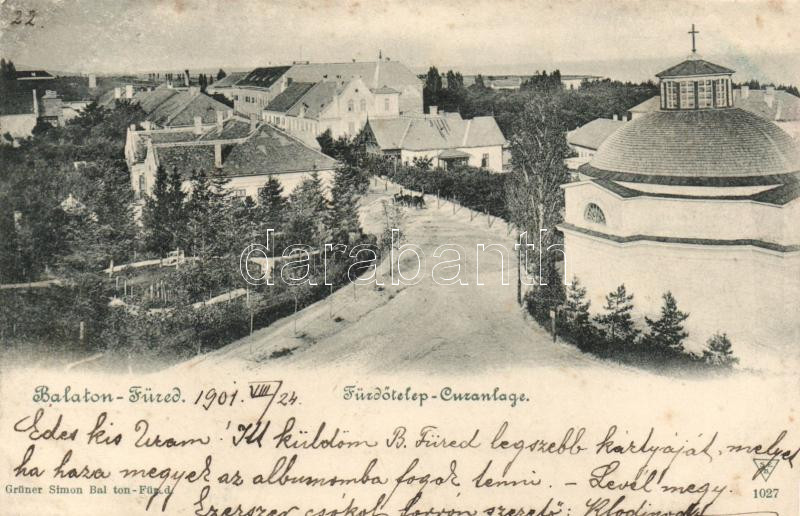 22.
darabanth
Balaton-Füred. 1901. VIII/24.
Fürdőtelep-Curanlage.
Édes kis Uram! Itt küldöm B. Füred legszebb kártyáját, melyet
ha haza megyek az albumomba fogok tenni. - Levél megy.
Grüner Simon Bal ton-Für.d.
1027
Ezerszer csókol forrón szerető: